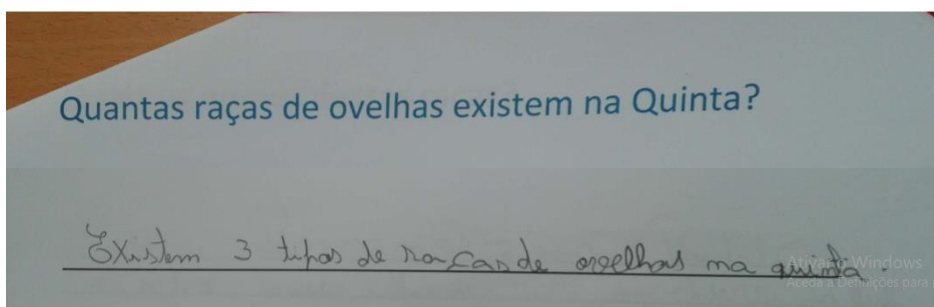 Quantas raças de ovelhas existem na Quinta?
Existem 3 tipos de raças de ovelhas na quinta.
Ativar o Windows
Aceda a Definições para